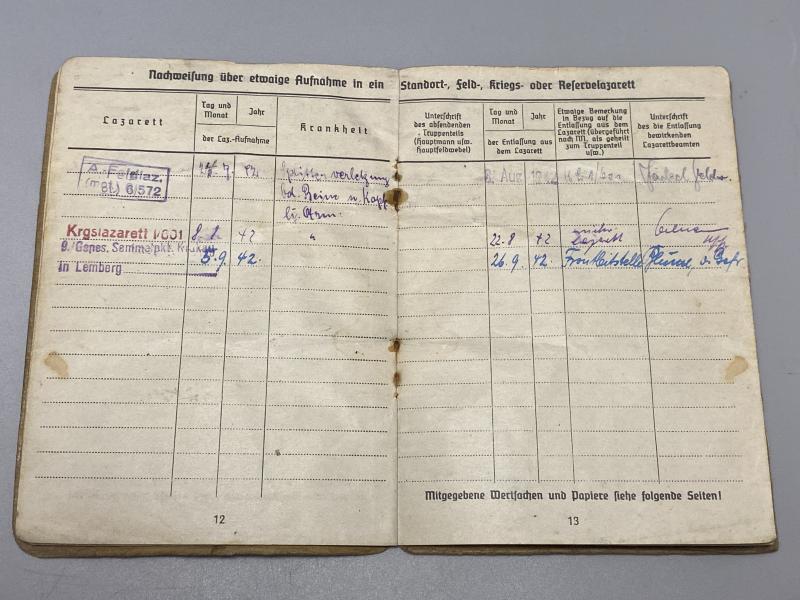 Nachweisung über etwaige Aufnahme in ein Standort-, Feld-, Kriegs- oder Reservelazarett
Lazarett
Tag und Monat
Jahr
der Laz.-Aufnahme
Krankheit
Unterschrift
des absendenden
Truppenteils
(Hauptmann usw.
Hauptfeldwebel)
Tag und Monat
Jahr
der Entlassung aus
dem Lazarett
Etwaige Bemerkung
in Bezug auf die
Entlassung aus dem
Lazarett (übergeführt
nach NN, als geheilt
zum Truppenteil
usw.)
Unterschrift
des die Entlassung
bewirkenden
Lazarettbeamten
Feldlaz.
(mot.) 6/572
7. 42
Splitterverletzung
bd. Beine u. Kopf
li. Arm
Aug. 1942
Krgslazarett
8. 8. 42 "
22.8 42
Lazarett
9. Genes. Sammelpkt.
in Lemberg
5.9. 42.
26.9. 42. Frontleitstelle
Mitgegebene Wertsachen und Papiere siehe folgende Seiten!
12
13